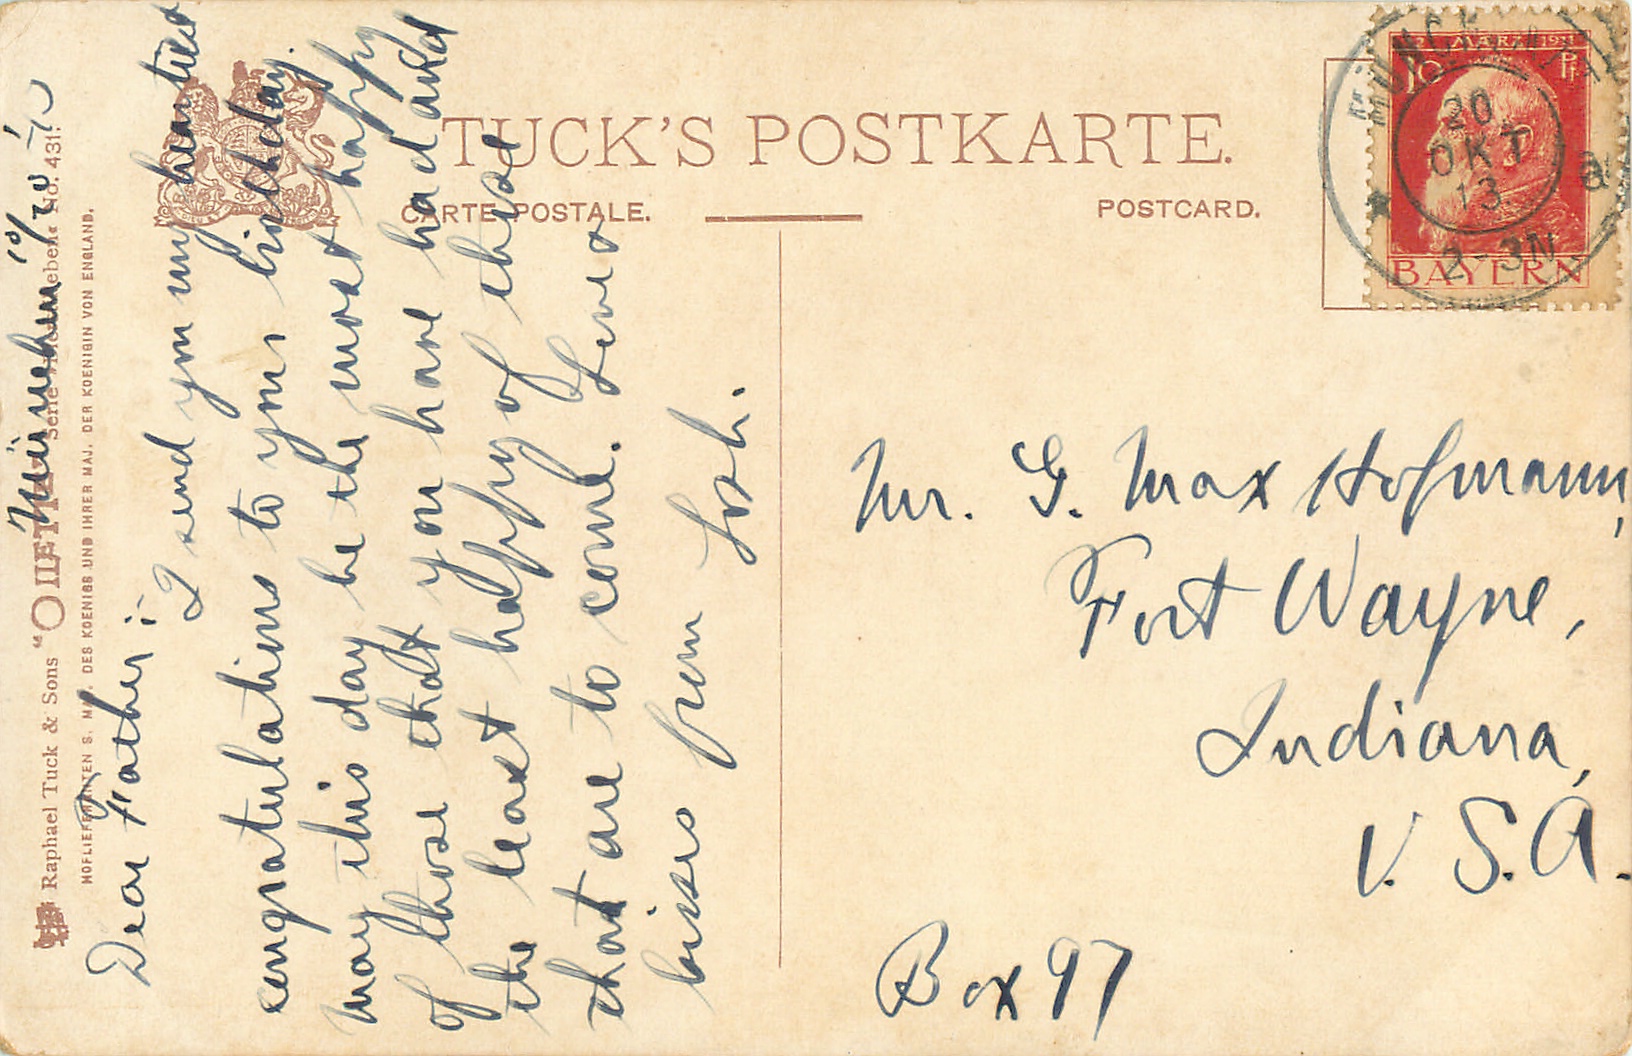 TUCK'S POSTKARTE.
CARTE POSTALE.
POSTCARD.
Raphael Tuck & Sons "OILETTE" Serie No. 431.
HOFLIEFERANTEN S. MAJ. DES KOENIGS UND IHRER MAJ. DER KOENIGIN VON ENGLAND.
München 10/20
Dear Father:
I send you my heartiest
congratulations to your birthday.
May this day be the most happy
of those that you have had and
the least happy of those
that are to come. Love &
kisses from Loth.
MÜNCHEN
20
OKT
13
2-3N
a
12. MÄRZ 1911
10 Pf
BAYERN
Mr. G. Max Hofmann,
Fort Wayne,
Indiana,
U.S.A.
Box 97